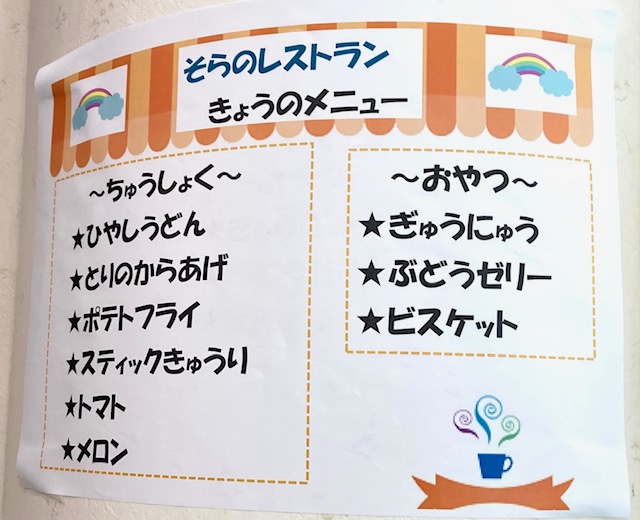 そらのレストラン
きょうのメニュー
～ちゅうしょく～
★ひやしうどん
★とりのからあげ
★ポテトフライ
★スティックきゅうり
★トマト
★メロン
～おやつ～
★ぎゅうにゅう
★ぶどうゼリー
★ビスケット